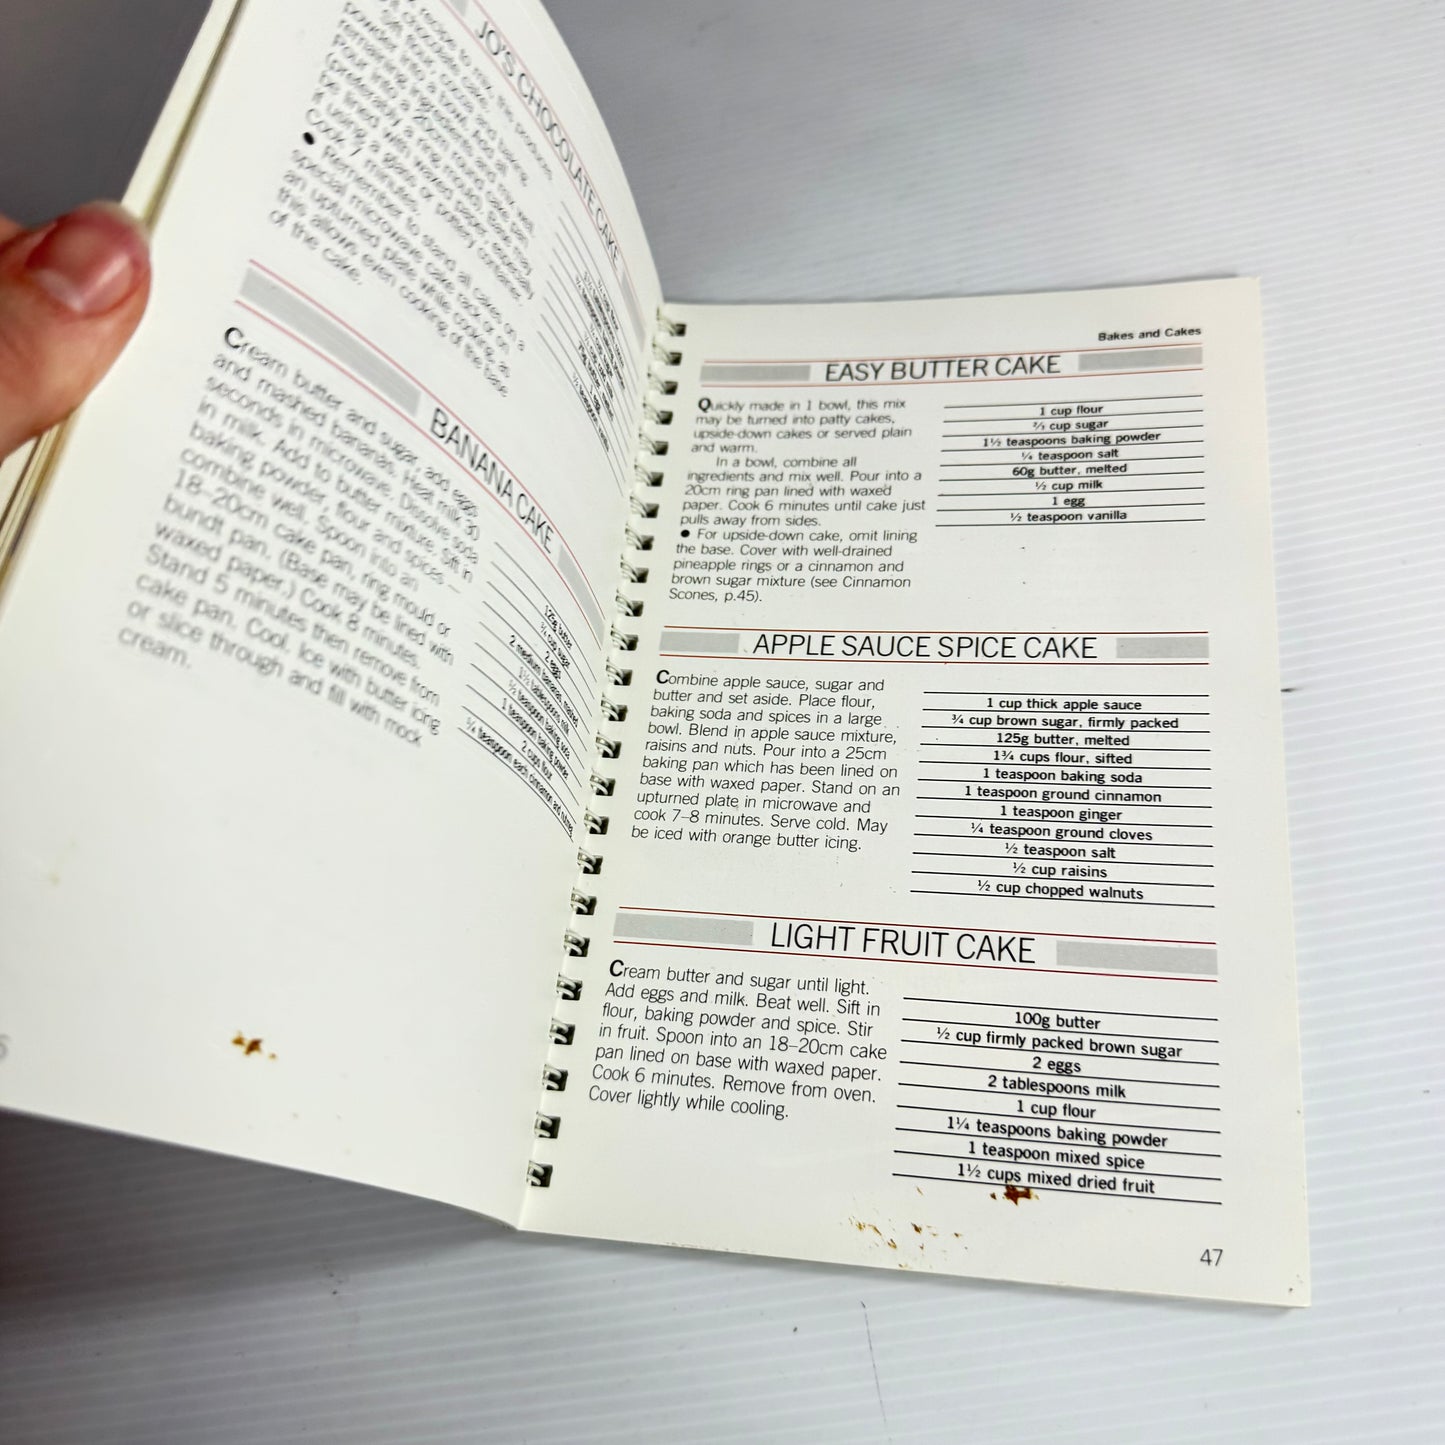 JO'S CHOCOLATE CAKE
recipe to mix, this produces
chocolate cake.
Sift flour, cocoa and baking
powder into a bowl. Add all
remaining ingredients and mix well.
Pour into a 20cm round cake pan
(preferably a ring mould). Base may
be lined with waxed paper, especially
if using a glass or pottery container.
Cook 7 minutes.
● Remember to stand all cakes on a
special microwave cake rack or on
an upturned plate while cooking, as
this allows even cooking of the base
of the cake.
BANANA CAKE
Cream butter and sugar, add eggs
and mashed bananas. Heat milk 30
seconds in microwave. Dissolve soda
in milk. Add to butter mixture. Sift in
baking powder, flour and spices —
combine well. Spoon into an
18–20cm cake pan, ring mould or
bundt pan. (Base may be lined with
waxed paper.) Cook 8 minutes.
Stand 5 minutes then remove from
cake pan. Cool. Ice with butter icing
or slice through and fill with mock
cream.
125g butter
¾ cup sugar
2 eggs
2 medium bananas, mashed
1½ tablespoons milk
½ teaspoon baking soda
1 teaspoon baking powder
2 cups flour
¼ teaspoon each cinnamon and nutmeg
Bakes and Cakes
EASY BUTTER CAKE
Quickly made in 1 bowl, this mix
may be turned into patty cakes,
upside-down cakes or served plain
and warm.
In a bowl, combine all
ingredients and mix well. Pour into a
20cm ring pan lined with waxed
paper. Cook 6 minutes until cake just
pulls away from sides.
● For upside-down cake, omit lining
the base. Cover with well-drained
pineapple rings or a cinnamon and
brown sugar mixture (see Cinnamon
Scones, p.45).
1 cup flour
⅔ cup sugar
1½ teaspoons baking powder
¼ teaspoon salt
60g butter, melted
½ cup milk
1 egg
½ teaspoon vanilla
APPLE SAUCE SPICE CAKE
Combine apple sauce, sugar and
butter and set aside. Place flour,
baking soda and spices in a large
bowl. Blend in apple sauce mixture,
raisins and nuts. Pour into a 25cm
baking pan which has been lined on
base with waxed paper. Stand on an
upturned plate in microwave and
cook 7–8 minutes. Serve cold. May
be iced with orange butter icing.
1 cup thick apple sauce
¾ cup brown sugar, firmly packed
125g butter, melted
1¾ cups flour, sifted
1 teaspoon baking soda
1 teaspoon ground cinnamon
1 teaspoon ginger
¼ teaspoon ground cloves
½ teaspoon salt
½ cup raisins
½ cup chopped walnuts
LIGHT FRUIT CAKE
Cream butter and sugar until light.
Add eggs and milk. Beat well. Sift in
flour, baking powder and spice. Stir
in fruit. Spoon into an 18–20cm cake
pan lined on base with waxed paper.
Cook 6 minutes. Remove from oven.
Cover lightly while cooling.
100g butter
½ cup firmly packed brown sugar
2 eggs
2 tablespoons milk
1 cup flour
1¼ teaspoons baking powder
1 teaspoon mixed spice
1½ cups mixed dried fruit
47